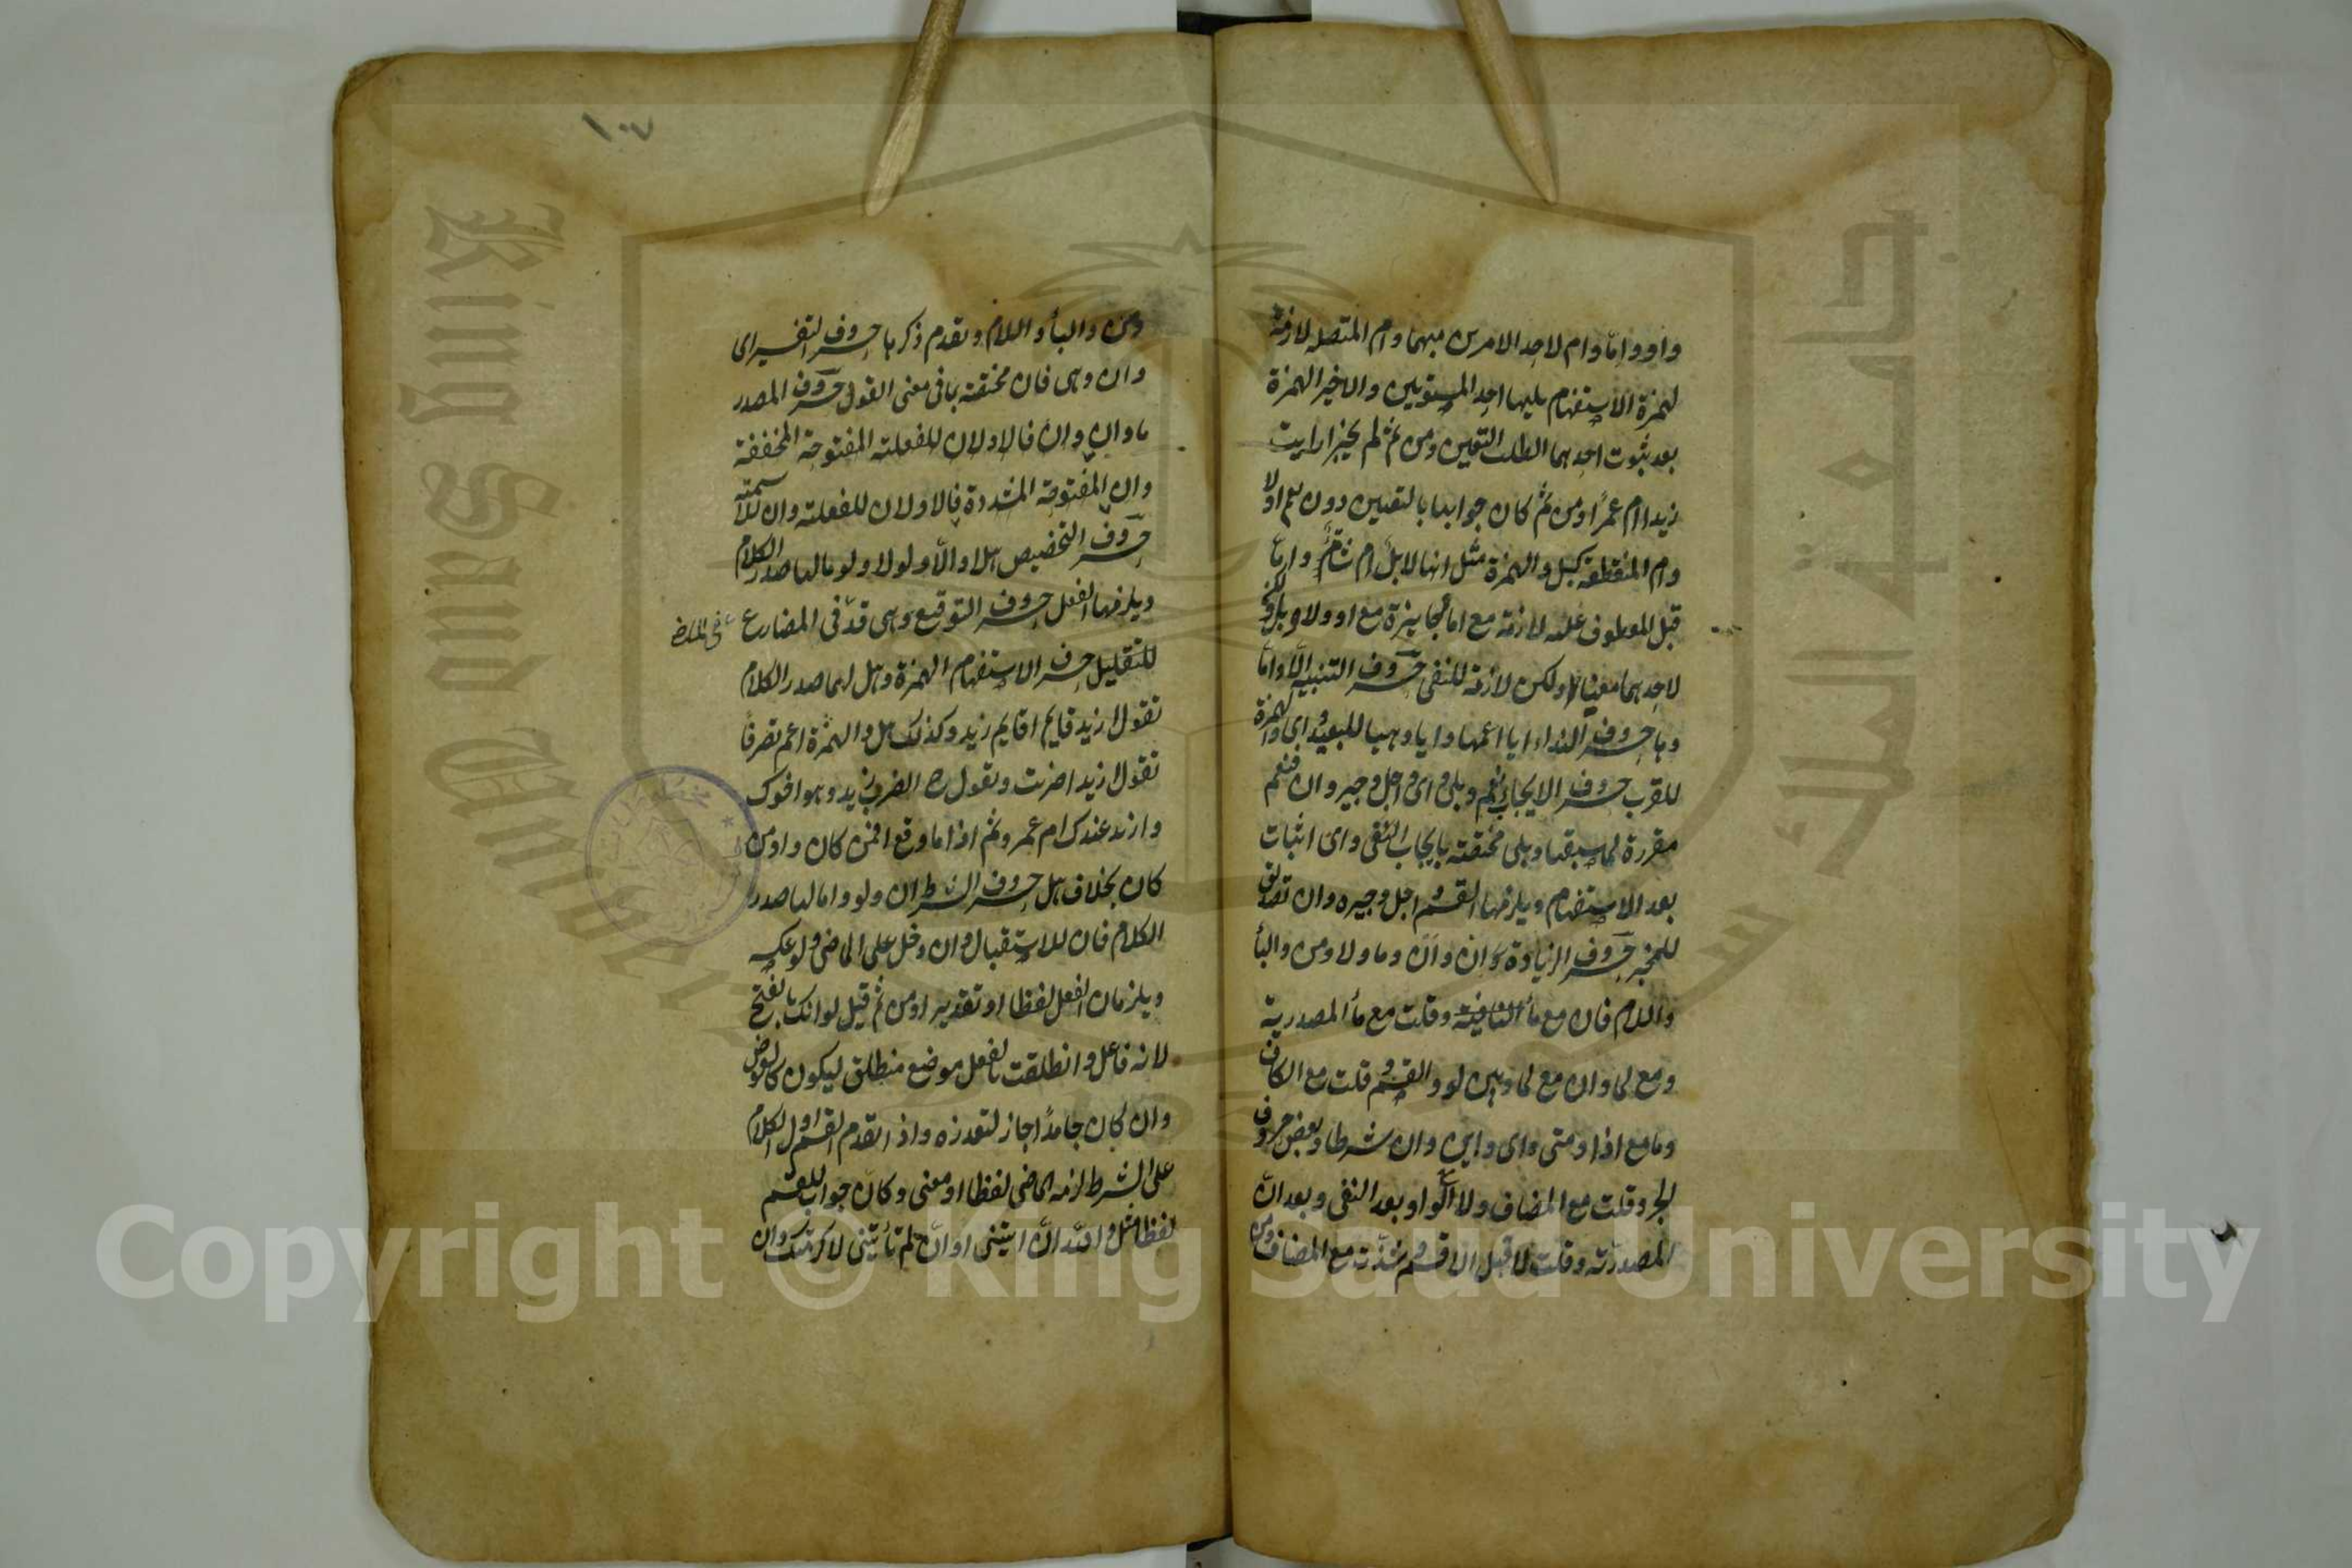 واو واما وام لاحد الامرين مبهما وام المتصله لازمة
لهمزة الاستفهام يليها احد المستويين والاخير الهمزة
بعد ثبوت احدهما لطلب التعيين ومن ثم لم يجز ارايت
زيدا ام عمرا ومن ثم كان جوابها بالتعيين دون نعم اولا
وام المنقطعة كبل والهمزة مثل انها لابل ام شاة واما
قبل المعطوف عليه لازمة مع اما جايزة مع او ولا وبل ولكن
لاحدهما معينا ولكن لازمة للنفى حروف التنبيه الا واما
وها حروف النداء يا اعمها وايا وهيا للبعيد واى والهمزة
للقرب حروف الايجاب نعم وبلى واى واجل وجير وان فنعم
مقررة لما سبقها وبلى مختصة بايجاب النفى واى اثبات
بعد الاستفهام ويلزمها القسم واجل وجير وان تصديق
للمخبر حروف الزيادة ان وان وما ولا ومن والباء
واللام فان مع ما النافية وقلت مع ما المصدرية
ومع لما وان مع لما وبين لو والقسم وقلت مع الكاف
وما مع اذا ومتى واى واين وان شرطا وبعض حروف
الجر وقلت مع المضاف ولا مع الواو بعد النفى وبعد ان
المصدرية وقلت لا قبل اقسم وشذت مع المضاف ومن
ومن والباء واللام وتقدم ذكرها حروف التفسير اى
وان وهى فان مختصة بما فى معنى القول حروف المصدر
ما وان وان فالاولان للفعلية المفتوحة المخففة
وان المفتوحة المشددة فالاولان للفعلية وان للاسمية
حروف التخضيض هلا والا ولولا ولوما لها صدر الكلام
ويلزمها الفعل حروف التوقيع وهى قد فى المضارع
فى الماضى
للتقليل حرف الاستفهام الهمزة وهل لهما صدر الكلام
تقول ازيد قايم اقايم زيد وكذلك هل والهمزة اعم تصرفا
تقول ازيدا ضربت وتقول اتضرب زيد وهو اخوك
وازيد عندك ام عمرو ثم اذا ما وقع افمن كان واومن
كان بخلاف هل حروف الشرط ان ولو واما لها صدر
الكلام فان للاستقبال وان دخل على الماضى ولو عكسه
ويلزمان الفعل لفظا او تقديرا ومن ثم قيل لو انك بالفتح
لانه فاعل وانطلقت بالفعل موضع منطلق ليكون كالعوض
وان كان جامدا جاز لتعذره واذا تقدم القسم اول الكلام
على الشرط لزمه الماضى لفظا او معنى وكان جواب للقسم
لفظا مثل والله ان اتيتنى او ان لم تأتنى لاكرمتك وان
١٠٧
King Saud University
جامعة الملك سعود
Copyright © King Saud University